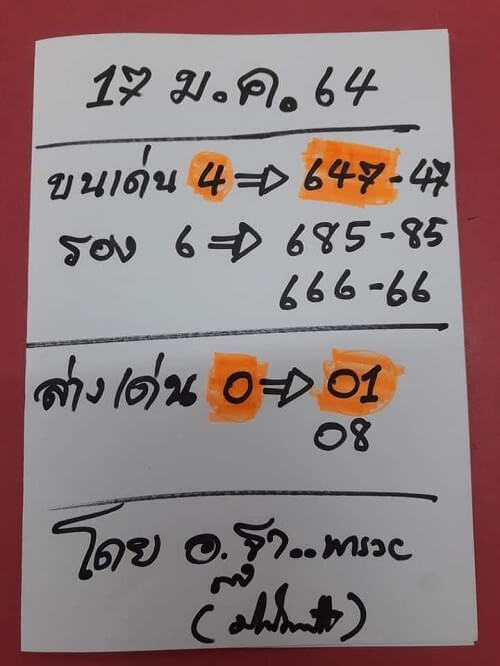 17 ม.ค. 64
บนเด่น 4 ⇒ 647-47
รอง 6 ⇒ 685-85
666-66
ล่างเด่น 0 ⇒ 01
08
โดย อ.